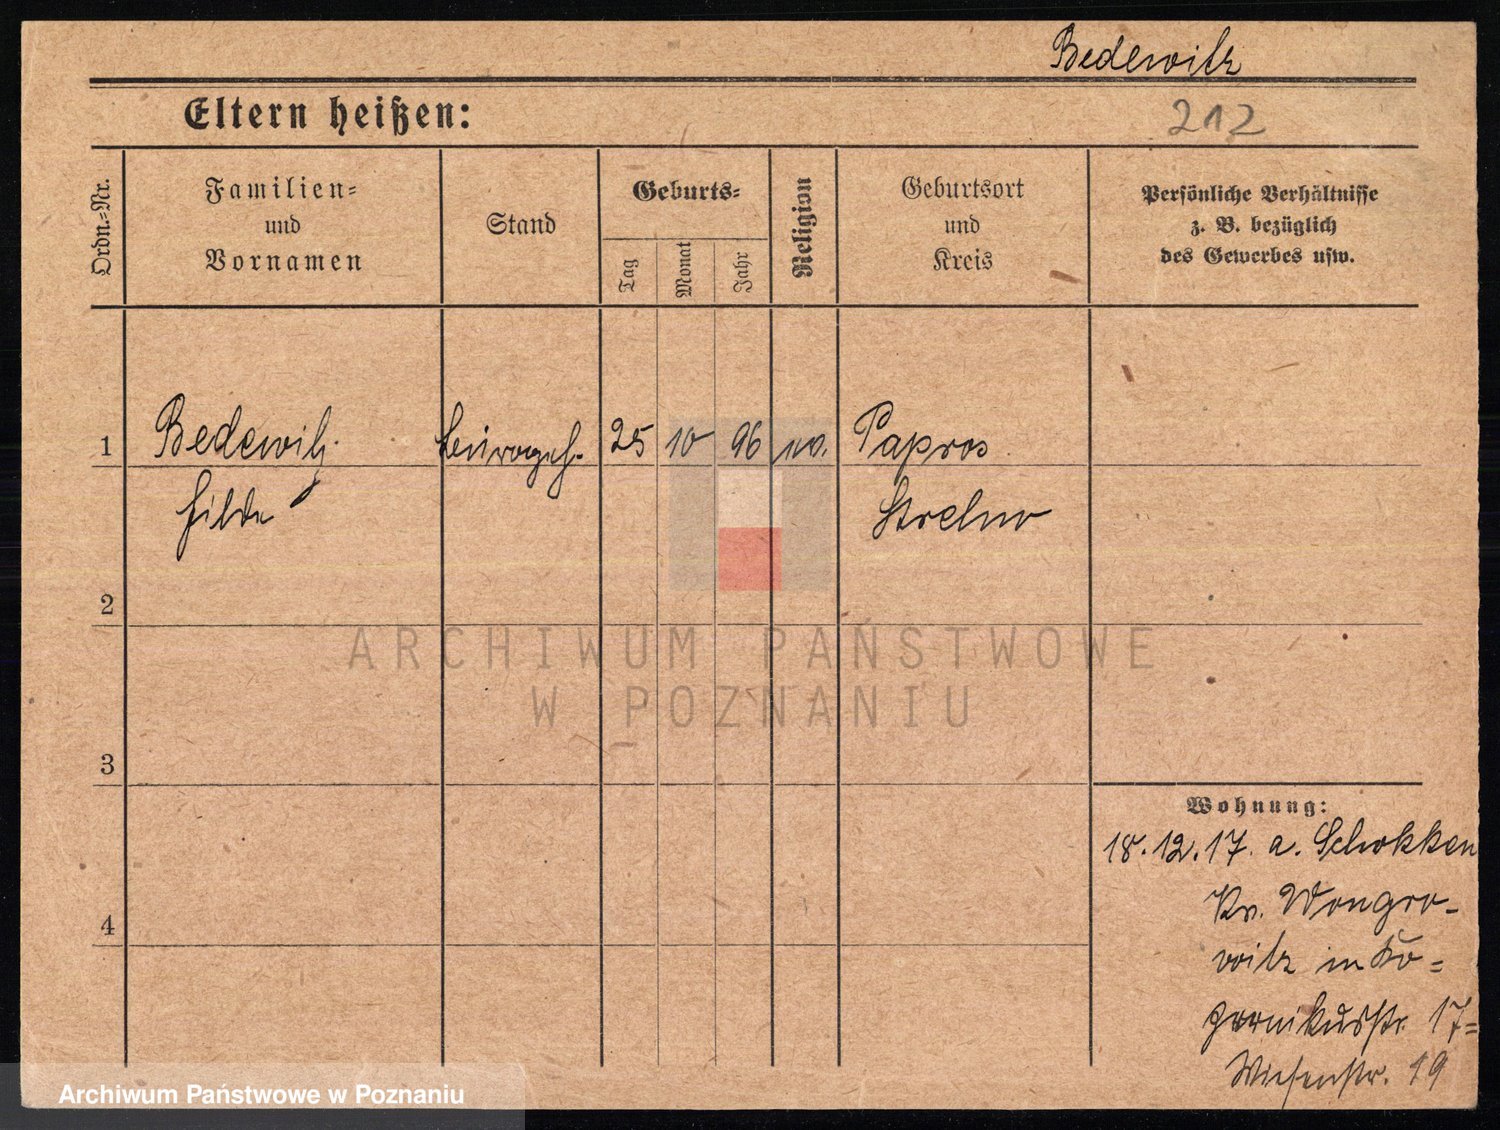 Bedewitz
Eltern heißen:
212
Ordn.=Nr.
Familien=
und
Vornamen
Stand
Geburts=
Tag
Monat
Jahr
Religion
Geburtsort
und
Kreis
Persönliche Verhältnisse
z. B. bezüglich
des Gewerbes usw.
1 Bedewitz Bürogeh. 25 10 96 Papros
Hilda Strelno
2
ARCHIWUM PAŃSTWOWE
W POZNANIU
3
Wohnung:
18.12.17. a. Schokken
4
Kr. Wongro-
witz in Ko=
pernikusstr. 17=
Wiesenstr. 19
Archiwum Państwowe w Poznaniu